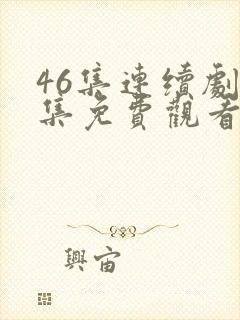 46集連續劇
集免費觀看
興宙